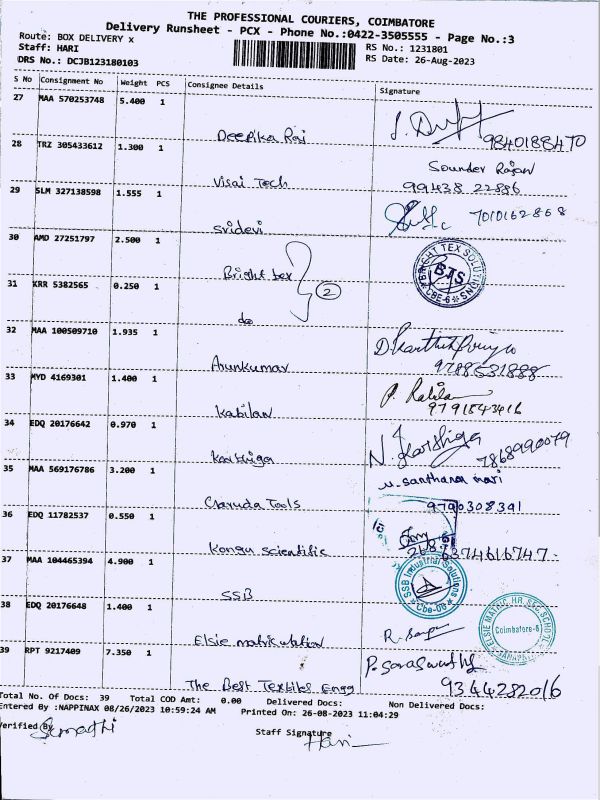 THE PROFESSIONAL COURIERS, COIMBATORE
Delivery Runsheet - PCX - Phone No.:0422-3505555 - Page No.:3
Route: BOX DELIVERY x
Staff: HARI
DRS No.: DCJB123180103
RS No.: 1231801
RS Date: 26-Aug-2023
S No Consignment No Weight PCS Consignee Details Signature
27 MAA 570253748 5.400 1
Deepika Raj
28 TRZ 305433612 1.300 1
Sounder Rajan
Visai Tech 99438 22886
29 SLM 327138598 1.555 1
7010162868
Sridevi
30 AMD 27251797 2.500 1
Bright tex
BRIGHT TEX SOLUTIONS
BTS
CBE-6
31 KRR 5382565 0.250 1
2
do
32 MAA 100509710 1.935 1
Arunkumar 9788531888
33 MYD 4169301 1.400 1
Kabilan 9791543416
34 EDQ 20176642 0.970 1
Karthiga 7868990079
35 MAA 569176786 3.200 1
M. santhana mari
Garuda Tools 9790308341
36 EDQ 11782537 0.550 1
Kongu scientific 6374616747
37 MAA 104465394 4.900 1
SSB
SSB Industrial Solutions
Cbe-06
38 EDQ 20176648 1.400 1
Elsie matriculation
Coimbatore-6
39 RPT 9217409 7.350 1
P. Saraswathy
The Best Textiles Engg 9344282016
Total No. Of Docs: 39 Total COD Amt: 0.00 Delivered Docs: Non Delivered Docs:
Entered By :NAPPINAX 08/26/2023 10:59:24 AM Printed On: 26-08-2023 11:04:29
Verified By Sumathi
Staff Signature Hari